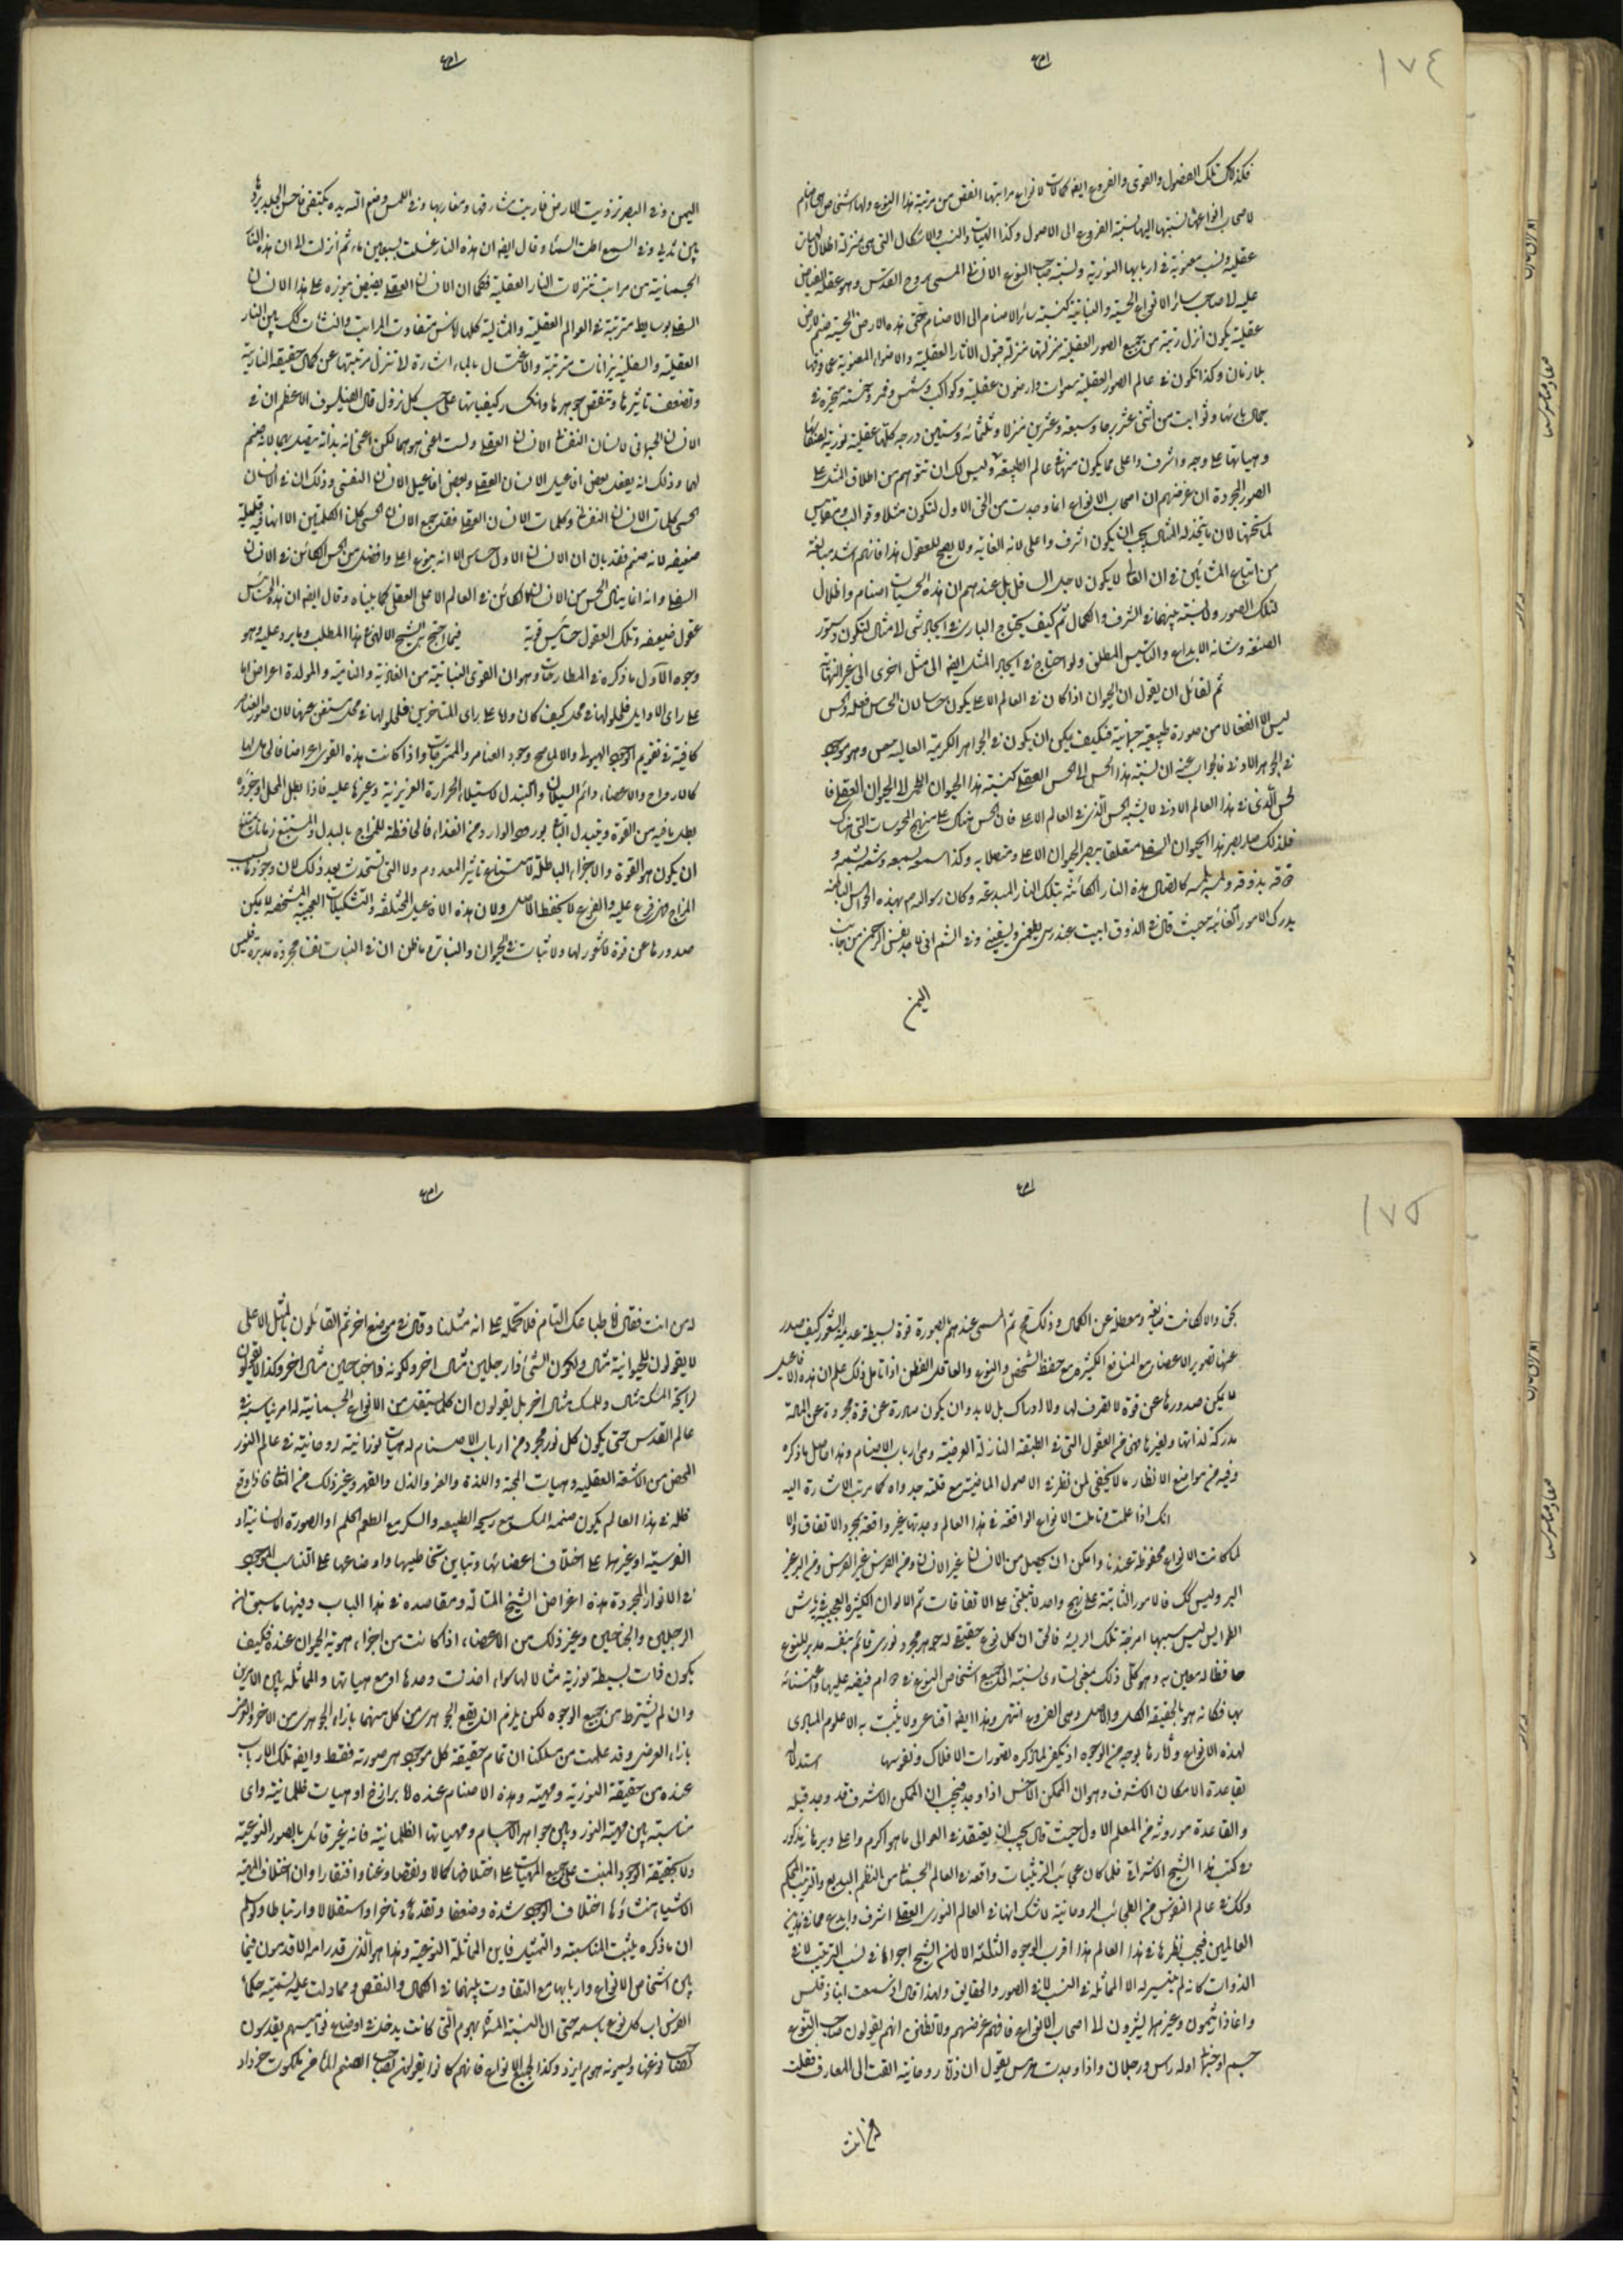 ١٧٤
فكذلك تلك الفصول والقوى والفروع ايضا كمالات لانواع مراتبها انقص من مرتبة هذا النوع ولها اشخاص هى اصنام
لاصحاب انواعها نسبتها اليها نسبة الفروع الى الاصول وكذا الهيات والنسب والاشكال التى هى بمنزلة اظلال لهيات
عقلية ونسب معنوية فى اربابها النورية ونسبة صاحب النوع الانسانى المسمى بروح القدس وهو عقله الفياض
عليه الى اصحاب سائر الانواع الحسية والنباتية كنسبة سائر الاصنام الى الاصنام حتى هذه الارض الحسية صنم لارض
عقلية يكون انزل رتبة من جميع الصور العقلية منزلتها منزلة قبول الآثار العقلية والاضواء المعنوية عما فوقها
بلا زمان وكذا تكون فى عالم الصور العقلية سموات وارضون عقلية وكواكب وشمس وقمر وخمسة متحيرة فى
جمال بارئها وثوابت من اثنى عشر برجا وسبعة وعشرين منزلا وثلثمائة وستين درجة كلها عقلية نورية
وهياتها على وجه اشرف واعلى مما يكون منها فى عالم الطبيعة وليس لك ان تتوهم من اطلاق المثل على
الصور المجردة ان غرضهم ان اصحاب الانواع انما وجدت من الحق الاول لتكون مثلا وقوالب ومقاييس
لما تحتها لان ما يتخذ له المثال يجب ان يكون اشرف واعلى لانه الغاية ولا يصح للعقول هذا فانهم اشد مبالغة
من اتباع المشائين فى ان العالى لا يكون لاجل السافل بل عندهم ان هذه الحسيات اصنام واظلال
لتلك الصور ولا نسبة بينهما فى الشرف والكمال ثم كيف يحتاج البارى فى ايجاد شى الى مثال لتكون دستور
الصنعة وشانه الابداع والتاسيس المطلق ولو احتاج فى ايجاد المثل ايضا الى مثل اخرى الى غير النهاية
ثم لقائل ان يقول ان الحيوان اذا كان فى العالم الاعلى يكون حساسا لان الحساس فصله والحس
ليس الا انفعالا من صورة طبيعية جسمانية فكيف يمكن ان يكون فى الجواهر الكريمة العالية حس وهو موجود
فى الجوهر الادنى فالجواب عنه ان نسبة هذا الحس الى الحس العقلى كنسبة هذا الحيوان اللحمى الى الحيوان العقلى فا
لحس الذى فى هذا العالم الادنى لا يشبه الحس الذى فى العالم الاعلى فان الحس هناك على منهج المحسوسات التى هناك
فلذلك صار بصر هذا الحيوان السفلى متعلقا ببصر الحيوان الاعلى ومتصلا به وكذا سمعه بسمعه وشمه بشمه و
ذوقه بذوقه ولمسه بلمسه كاتصال هذه النار الكائنة بتلك النار المبدعة وكان رسول الله ص بهذه الحواس الباطنة
يدرك الامور الغائبة حيث قال فى الذوق ابيت عند ربى يطعمنى ويسقينى وفى الشم انى لاجد نفس الرحمن من جانب
اليمن
اليمن وفى البصر زويت لى الارض فاريت مشارقها ومغاربها وفى اللمس وضع الله يده بكتفى فاحس الجلد بردها
بين ثديى وفى السمع اطت السماء وقال ايضا ان هذه النار غسلت بسبعين ماء ثم انزلت الى ان هذه النار
الجسمانية من مراتب تنزلات النار العقلية فكما ان الانسان العقلى يفيض بنوره على هذا الانسان
السفلى بوسايط مترتبة فى العوالم العقلية والمثالية كلها اناس متفاوت المراتب والنشات كك بين النار
العقلية والسفلية نيرانات مترتبة والاغتسال بالماء اشارة الى تنزل مرتبتها عن كمال حقيقة النارية
وتضعف تاثيرها وتنقص جوهرها وانكسار كيفياتها على حسب كل نزول قال الفيلسوف الاعظم ان فى
الانسان الجسمانى الانسان النفسانى والانسان العقلى ولست اعنى هو هما لكن اعنى انه بذاته يتصل بهما لانه صنم
لهما وذلك انه يفعل بعض افاعيل الانسان العقلى وبعض افاعيل الانسان النفسى وذلك ان فى الانسان
الحسى كلمات الانسان النفسانى وكلمات الانسان العقلى فقد جمع الانسان الحسى كلتا الكلمتين الا انها فيه قليلة
ضعيفة لانه صنم صنم فقد بان ان الانسان الاول حساس الا انه بنوع اعلى وافضل من الحس الكائن فى الانسان
السفلى وانه انما ينال الحس من الانسان الكائن فى العالم الاعلى العقلى كما بيناه وقال ايضا ان هذه الحسائس
عقول ضعيفة وتلك العقول حسائس قوية فيما احتج به الشيخ الالهى على هذا المطلب وما يرد عليه وهو
وجوه الاول ما ذكره فى المطارحات وهو ان القوى النباتية من الغاذية والنامية والمولدة اعراض اما
على راى الاوائل فلحلولها فى محل كيف كان واما على راى المتاخرين فلحلولها فى محل مستغن عنها لان صور العناصر
كافية فى تقويم وجود الهيولى والا لما صح وجود العناصر والممتزجات واذا كانت هذه القوى اعراضا فالحامل لها
كالارواح والاعضاء دائم السيلان والتبدل لاستيلاء الحرارة الغريزية وغيرها عليه فاذا بطل المحل او جزؤه
بطل ما فيه من القوة ويتبدل الباقى بورود الوارد من الغذاء فالحافظة للمزاج بالبدل والمستبقى زمانا يمتنع
ان يكون هو القوة والاجزاء الباطلة لامتناع تاثير المعدوم ولا التى ستحدث بعد ذلك لان وجودها بسبب
المزاج فهى فرع عليه والفرع لا يحفظ الاصل ولان هذه الافاعيل المختلفة والتشكيلات العجيبة المستحسنة لا يمكن
صدورها عن قوة لا شعور لها ولا ثبات فى الحيوان والنبات وما ظن ان فى النبات نفسا مجردة مدبرة فليس
١٧٥
بحق والا كانت ضائعة ومعطلة عن الكمال وذلك مح ثم المسمى عندهم بالمصورة قوة بسيطة عديمة الشعور كيف صدر
عنها تصوير الاعضاء مع المنافع الكثيرة مع حفظ الشخص والنوع والعاقل الفطن اذا تامل ذلك علم ان هذه الافاعيل
لا يمكن صدورها عن قوة لا تصرف لها ولا ادراك بل لا بد وان يكون صادرة عن قوة مجردة عن المادة
مدركة لذاتها ولغيرها فهى من العقول التى فى الطبقة النازلة العرضية وهى ارباب الاصنام وهذا حاصل ما ذكره
وفيه من مواضع الانظار ما لا يخفى لمن نظر فى الاصول الماضية مع قلة جدواه كما مرت الاشارة اليه
انك اذا علمت وتاملت الانواع الواقعة فى هذا العالم وجدتها غير واقعة بمجرد الاتفاق والا
لما كانت الانواع محفوظة عندنا وامكن ان يحصل من الانسان غير الانسان ومن الفرس غير الفرس ومن البر غير
البر وليس كك فالامور الثابتة على نهج واحد لا تبتنى على الاتفاقات ثم الالوان الكثيرة العجيبة فى رياش
الطواويس ليس سببها امزجة تلك الريشة فالحق ان كل نوع حقيقى له جوهر مجرد نورى قائم بنفسه مدبر للنوع
حافظ له معين به وهو كلى ذلك بمعنى تساوى نسبته الى جميع اشخاص النوع فى دوام فيضه عليها واعتنائه
بها فكانه هو بالحقيقة الكل والاصل وهى الفروع انتهى وهذا ايضا اقناعى ولا يثبت به الا علوم المبادى
لهذه الانواع وآثارها بوجه من الوجوه اذ يكفى لما ذكره تصورات الافلاك ونفوسها استدلالا
بقاعدة الامكان الاشرف وهو ان الممكن الاخس اذا وجد فيجب ان الممكن الاشرف قد وجد قبله
والقاعدة موروثة من المعلم الاول حيث قال يجب ان يعتقد فى العوالى ما هو اكرم واعلى وبرهانه مذكور
فى كتب هذا الشيخ الاشراقى فلما كان عجائب الترتيبات واقعة فى العالم الجسمانى من النظم البديع والترتيب المحكم
وكك فى عالم النفوس من العجائب الروحانية لا شك انها فى العالم النورى العقلى اشرف وابدع مما فى هذين
العالمين فيجب نظيرها فى هذا العالم هذا اقرب الوجوه الثلثة الا ان الشيخ اجراها فى نسب الترتيب لا فى
الذوات كانه لم يتيسر له الا المماثلة فى النسب لا فى الصور والحقايق ولهذا قال اذا سمعت انباذقلس
واغاثاذيمون وغيرهما يشيرون الى اصحاب الانواع فافهم غرضهم ولا تظنن انهم يقولون صاحب النوع
جسم او جسمانى اوله راس ورجلان واذا وجدت هرمس يقول ان ذاتا روحانية القت الى المعارف فقلت
له من انت
له من انت فقال انا طباعك التام فلا تحمله على انه مثلنا وقال فى موضع اخر ثم القائلون بالمثل الاعلى
لا يقولون للحيوانية مثال ولكون الشى ذا رجلين مثال اخر ولكونه ذا جناحين مثال اخر وكذا لا يقولون
لرائحة المسك مثال وللمسك مثال اخر بل يقولون ان كل ما يستقل من الانواع الجسمانية له امر يناسبه فى
عالم القدس حتى يكون كل نور مجرد من ارباب الاصنام له هيات نورانية روحانية فى عالم النور
المحض من الاشعة العقلية وهيات المحبة واللذة والعز والذل والقهر وغير ذلك من المعانى فاذا وقع
ظله فى هذا العالم يكون صنمه المسك مع ريحه الطيبة والسكر مع الطعم الحلو او الصورة الانسانية او
الفرسية او غيرها على اختلاف اعضائها وتباين تخاطيطها واوضاعها على التناسب الموجود
فى الانوار المجردة هذه اغراض الشيخ المتاله ومقاصده فى هذا الباب وفيها ما سبق ان
الرجلين والجناحين وغير ذلك من الاعضاء اذا كانت من اجزاء هوية الحيوان عنده فكيف
يكون ذات بسيطة نورية مثالا لها سواء اخذت وحدها او مع هياتها والمماثلة بين الامرين
وان لم يشترط من جميع الوجوه لكن يلزم ان يقع الجوهرى من كل منهما بازاء الجوهرى من الاخر والعرضى
بازاء العرضى وقد علمت من مسلكنا ان تمام حقيقة كل موجود هى صورته فقط وايضا تلك الارباب
عنده من حقيقة النورية ومهيته وهذه الاصنام عنده اما برازخ او هيات ظلمانية واى
مناسبة بين مهية النور وبين جواهر الاجسام وهياتها الظلمانية فانه غير قائل بالصور النوعية
ولا بحقيقة الوجود المنبث على جميع المهيات على اختلافها كمالا ونقصا وغنا وافتقارا وان اختلاف المهية
الاشياء منشاؤها اختلاف الوجود شدة وضعفا وتقدما وتاخرا واستقلالا وارتباطا ولو سلم
ان ما ذكره يثبت المناسبة والتمثيل فاين المماثلة النوعية وهذا هو الذى قد رامه الاقدمون فيما
بين اشخاص الانواع واربابها مع التفاوت بينهما فى الكمال والنقص ومما دلت عليه تسمية حكماء
الفرس رب كل نوع باسمه حتى ان النبتة المسماة بهوم التى كانت يدخل فى اوضاع نواميسهم يقدسون
لصاحب نوعها ويسمونه هوم ايزد وكذا لجميع الانواع فانهم كانوا يقولون لصاحب الصنم الماء من ملكوت خرداد